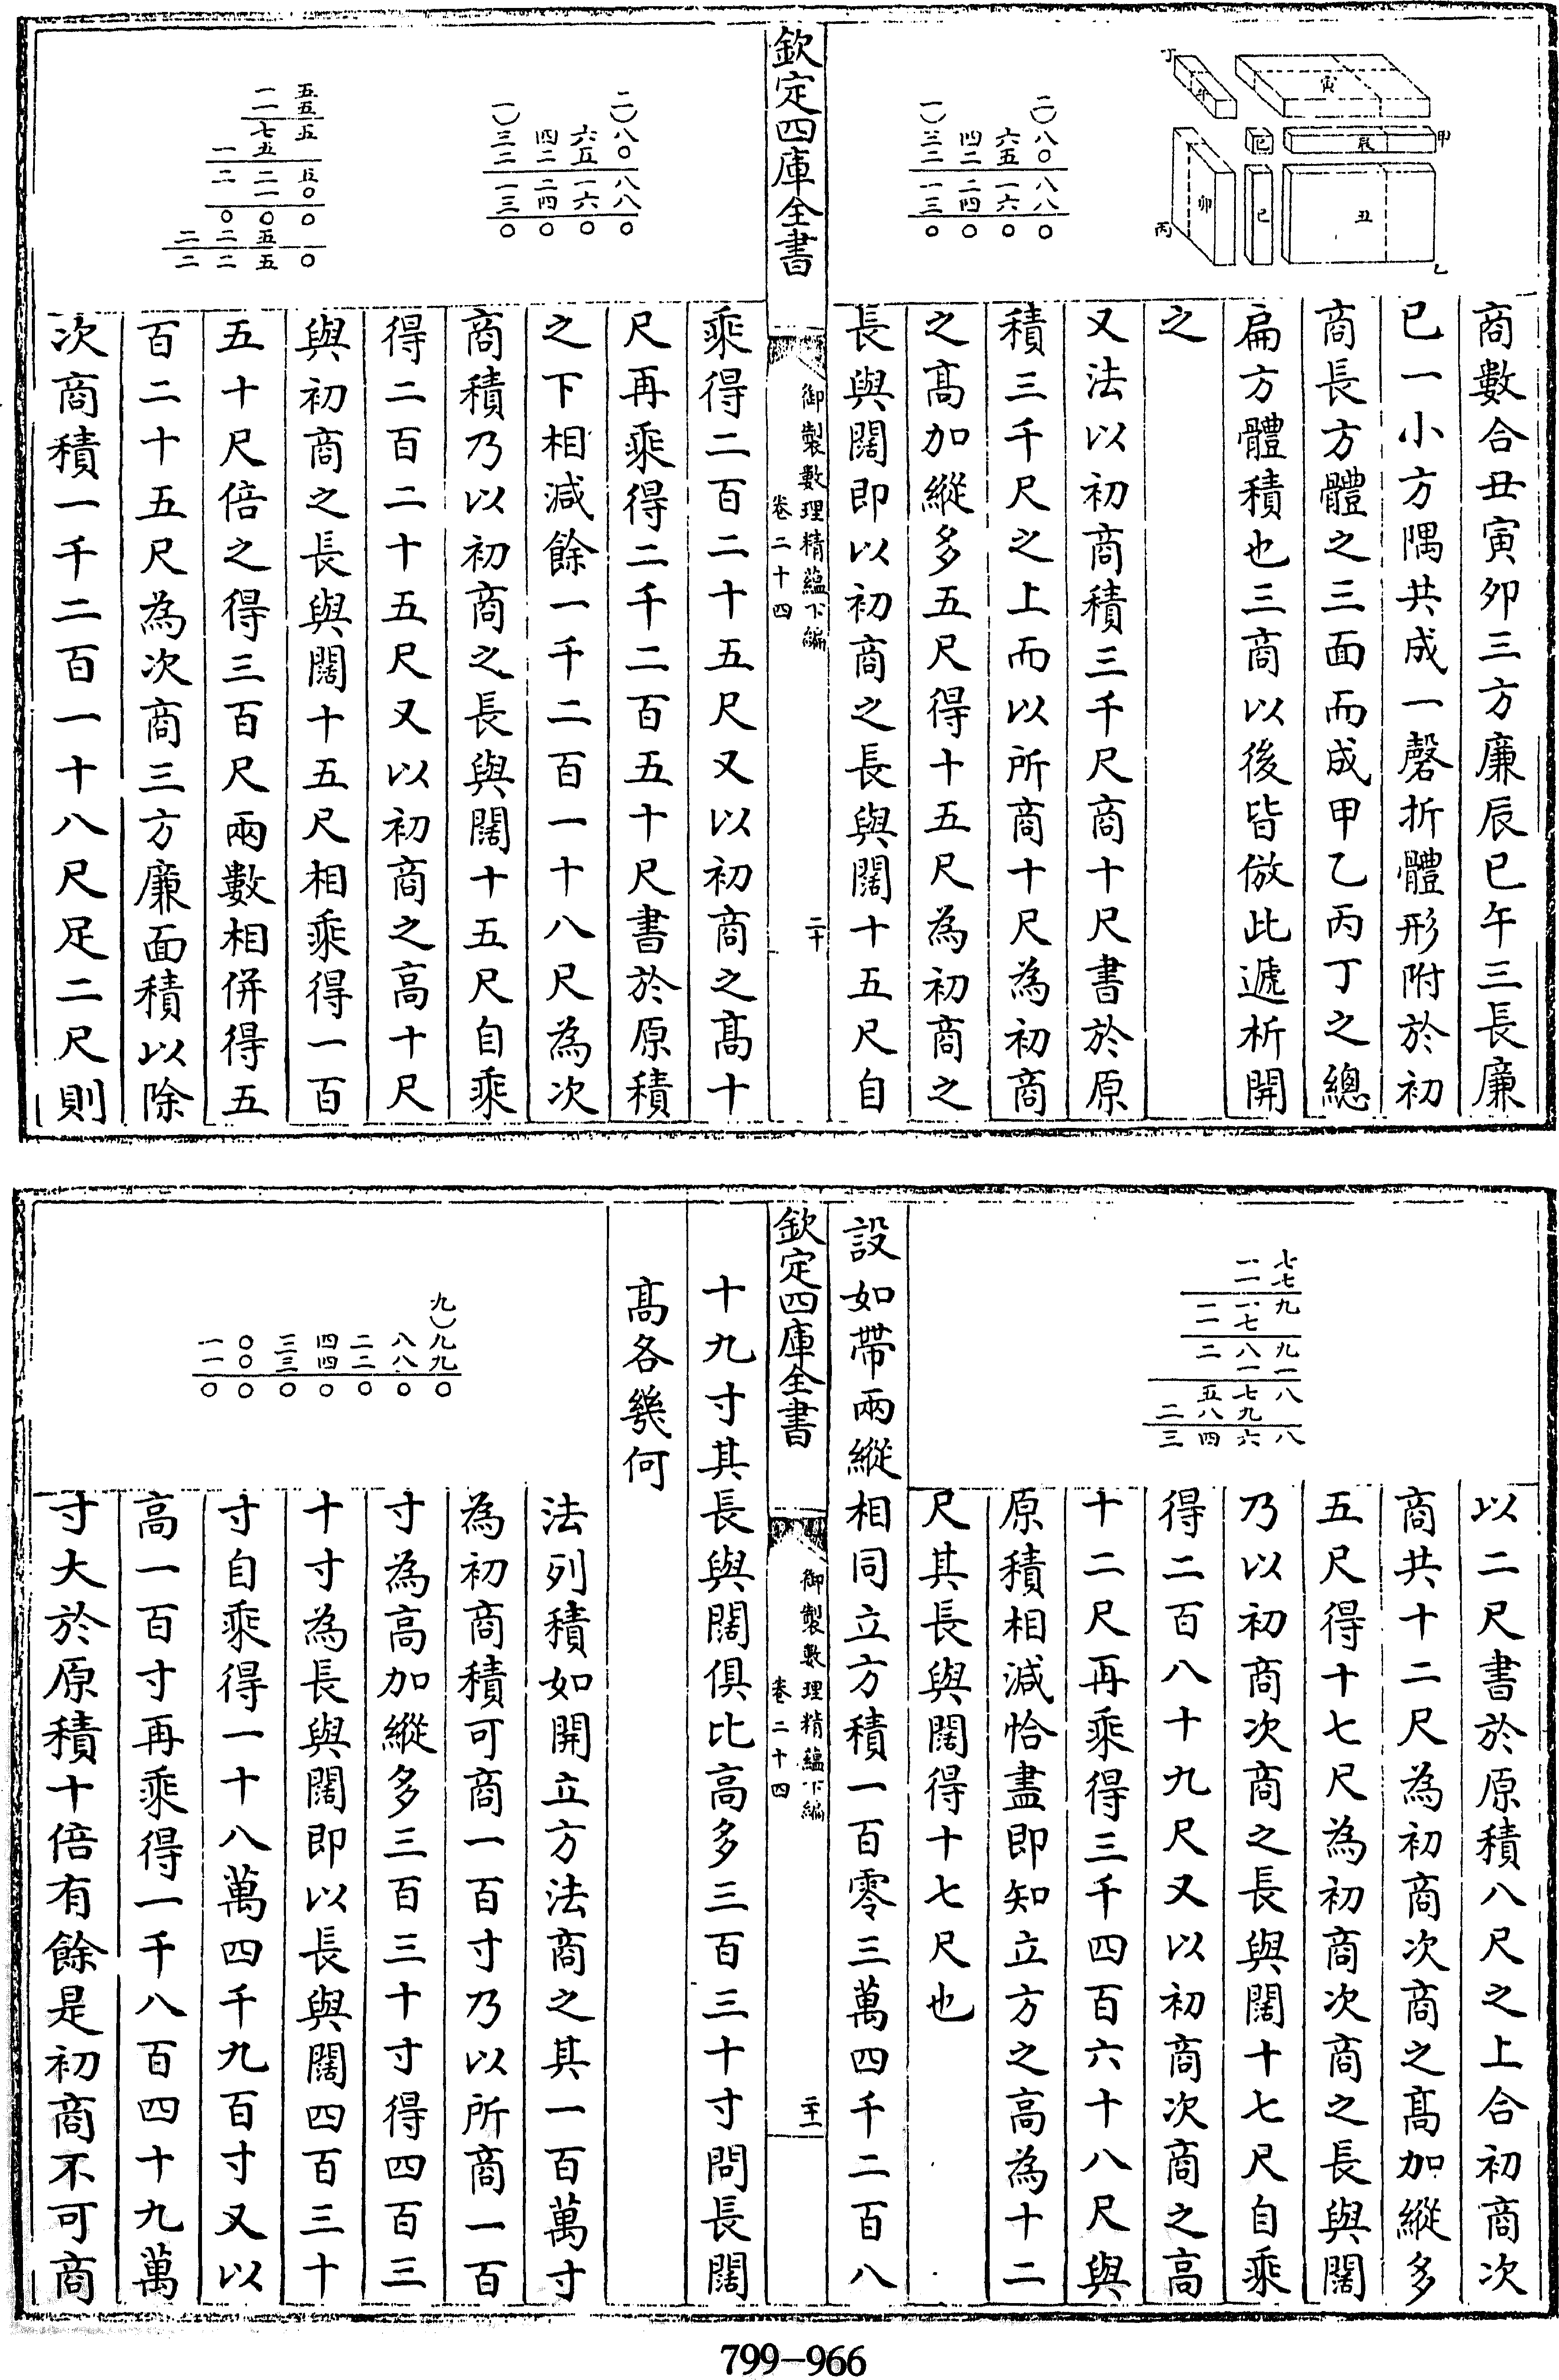 商數合丑寅卯三方廉辰巳午三長廉
已一小方隅共成一磬折體形附於初
商長方體之三面而成甲乙丙丁之總
扁方體積也三商以後皆倣此遞析開
之
又法以初商積三千尺商十尺書於原
積三千尺之上而以所商十尺為初商
之高加縱多五尺得十五尺為初商之
長與闊即以初商之長與闊十五尺自
欽定四庫全書
御製數理精蘊下編
卷二十四
二十
乘得二百二十五尺又以初商之高十
尺再乘得二千二百五十尺書於原積
之下相減餘一千二百一十八尺為次
商積乃以初商之長與闊十五尺自乘
得二百二十五尺又以初商之高十尺
與初商之長與闊十五尺相乘得一百
五十尺倍之得三百尺兩數相併得五
百二十五尺為次商三方廉面積以除
次商積一千二百一十八尺足二尺則
甲
乙
丙
丁
丑
寅
卯
辰
巳
午
二)八〇八八〇
六五一六〇
四二二四〇
一)三二一三〇
二)八〇八八〇
六五一六〇
四二二四〇
一)三二一三〇
五五五
一一七五
一
二二五
以二尺書於原積八尺之上合初商次
商共十二尺為初商次商之高加縱多
五尺得十七尺為初商次商之長與闊
乃以初商次商之長與闊十七尺自乘
得二百八十九尺又以初商次商之高
十二尺再乘得三千四百六十八尺與
原積相減恰盡即知立方之高為十二
尺其長與闊得十七尺也
設如帶兩縱相同立方積一百零三萬四千二百八
欽定四庫全書
御製數理精蘊下編
卷二十四
二十一
十九寸其長與闊俱比高多三百三十寸問長闊
高各幾何
法列積如開立方法商之其一百萬寸
為初商積可商一百寸乃以所商一百
寸為高加縱多三百三十寸得四百三
十寸為長與闊即以長與闊四百三十
寸自乘得一十八萬四千九百寸又以
高一百寸再乘得一千八百四十九萬
寸大於原積十倍有餘是初商不可商
七七九九一八
一一一七八一七九六
一一二五八四
二三
九)九九〇
八八〇
二二〇
四四〇
三三〇
〇〇〇
一一〇
799-966